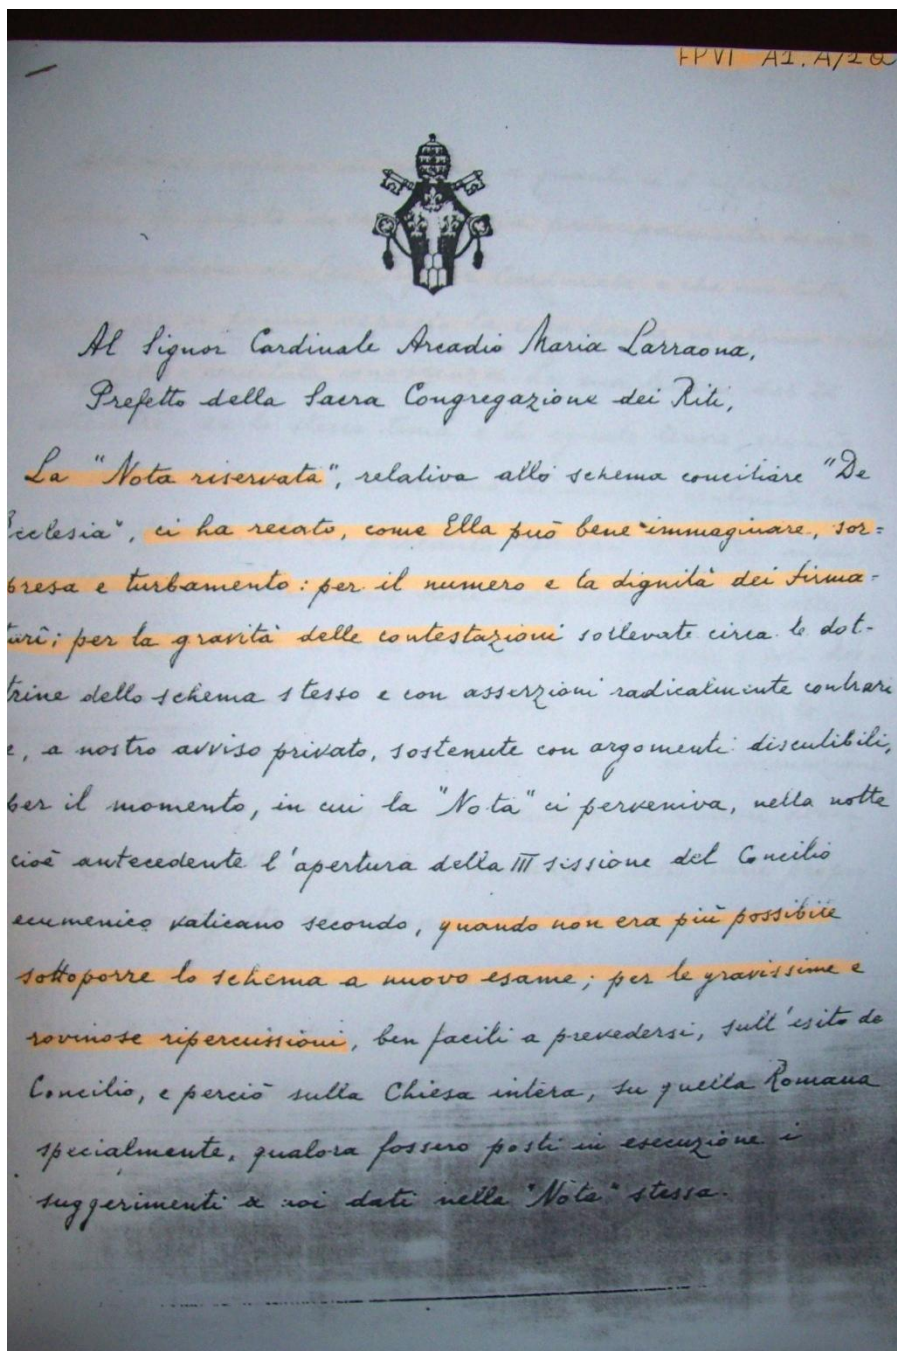 FPVI A1.A/2a
Al Signor Cardinale Arcadio Maria Larraona,
Prefetto della Sacra Congregazione dei Riti,
La "Nota riservata", relativa allo schema conciliare "De
Ecclesia", ci ha recato, come Ella può bene immaginare, sor=
presa e turbamento: per il numero e la dignità dei firma-
tari; per la gravità delle contestazioni sollevate circa le dot-
trine dello schema stesso e con asserzioni radicalmente contrari
e, a nostro avviso privato, sostenute con argomenti discutibili,
per il momento, in cui la "Nota" ci perveniva, nella notte
cioè antecedente l'apertura della III sessione del Concilio
ecumenico vaticano secondo, quando non era più possibile
sottoporre lo schema a nuovo esame; per le gravissime e
rovinose ripercussioni, ben facili a prevedersi, sull'esito de
Concilio, e perciò sulla Chiesa intera, su quella Romana
specialmente, qualora fossero posti in esecuzione i
suggerimenti a noi dati nella "Nota" stessa.